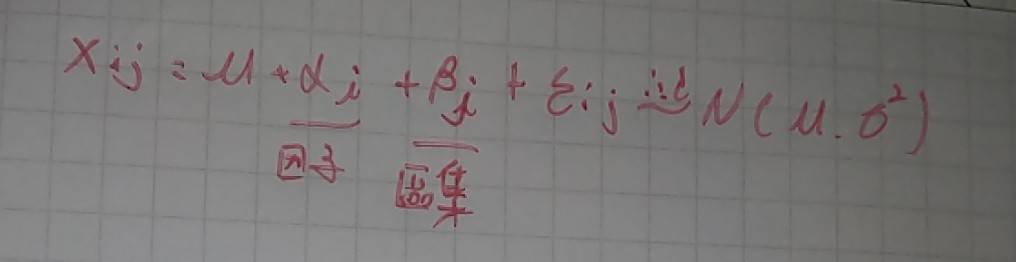 Xij = μ + αi + βj + εij iid~ N(μ. σ²)
因子 區集